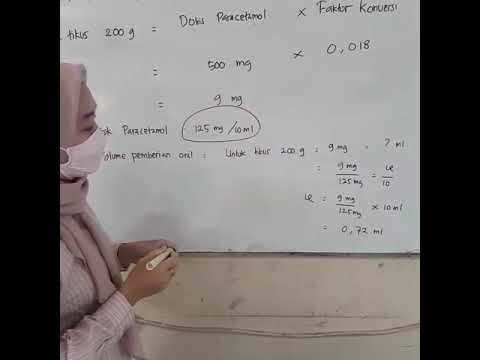 tikus 200 g = Dosis Paracetamol × Faktor Konversi
= 500 mg × 0,018
= 9 mg
Paracetamol 125 mg/10 ml
volume pemberian oral : Untuk tikus 200 g : 9 mg = ? ml
= 9 mg / 125 mg = / 10
= 9 mg / 125 mg × 10 ml
= 0,72 ml